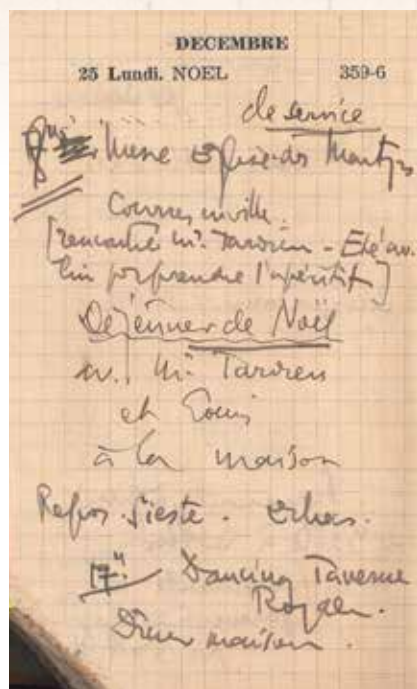 DECEMBRE
25 Lundi. NOEL 359-6
de service
Messe église des Martyrs
Courses en ville.
[rencontré Mr. Tardieu - Eté av.
lui pr prendre l'apéritif]
Déjeuner de Noël
av. Mr. Tardieu
et Louis
à la maison
Repos. Sieste.
17h. Dancing Taverne
Royale.
Diner maison.